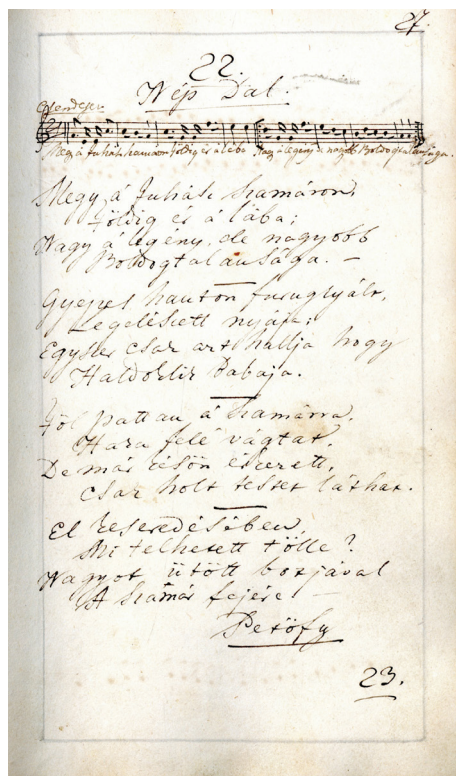 27.
22.
Nép Dal.
Megy á Juhász szamáron földig ér á lába Nagy á legény de nagyobb Boldogtalansága.
Megy á Juhász szamáron,
Földig ér á lába;
Nagy á legény, de nagyobb
Boldogtalansága. —
Gyepes hanton furuglyált,
Legelészett nyája;
Egyszer csak azt hallja hogy
Haldoklik Babája.
Föl pattan á szamárra,
Haza felé vágtat,
De már késön érkezett,
csak holt testet láthat.
El keseredésében,
Mi telhetett tölle?
Nagyot ütött botjával
A szamár fejére —
Petöfy
23.